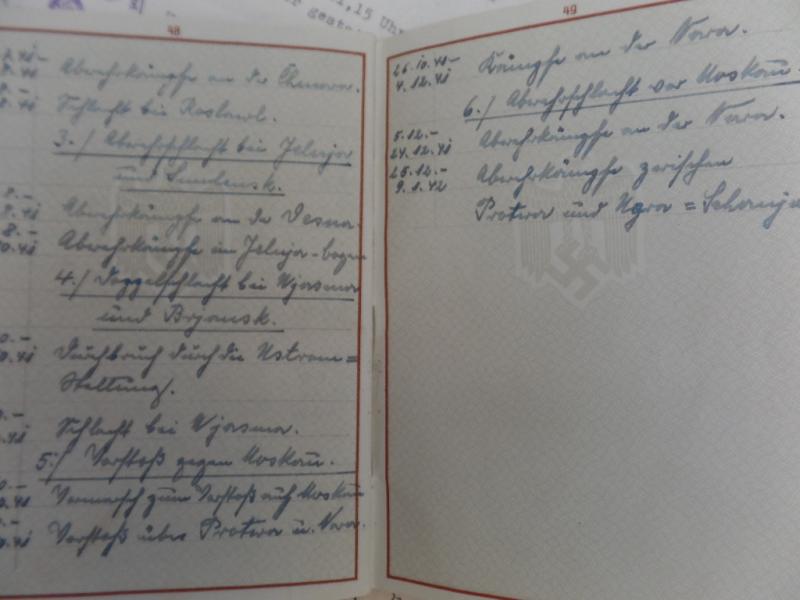 1,15 Uhr
48
Abwehrkämpfe an der
Schlacht bei Roslawl.
3./ Abwehrschlacht bei Jelnja
und Smolensk.
Abwehrkämpfe an der Desna.
Abwehrkämpfe im Jelnja-bogen
4./ Doppelschlacht bei Wjasma
und Brjansk.
Durchbruch durch die =
Stellung.
Schlacht bei Wjasma.
5./ Vorstoß gegen Moskau.
Vormarsch zum Vorstoß auf Moskau
Vorstoß über Protwa u. Nara.
49
26.10.41- Kämpfe an der Nara.
4.12.41
6./ Abwehrschlacht vor Moskau.
5.12.- Abwehrkämpfe an der Nara.
24.12.41
25.12.- Abwehrkämpfe zwischen
9.1.42 Protwa und Ugra =